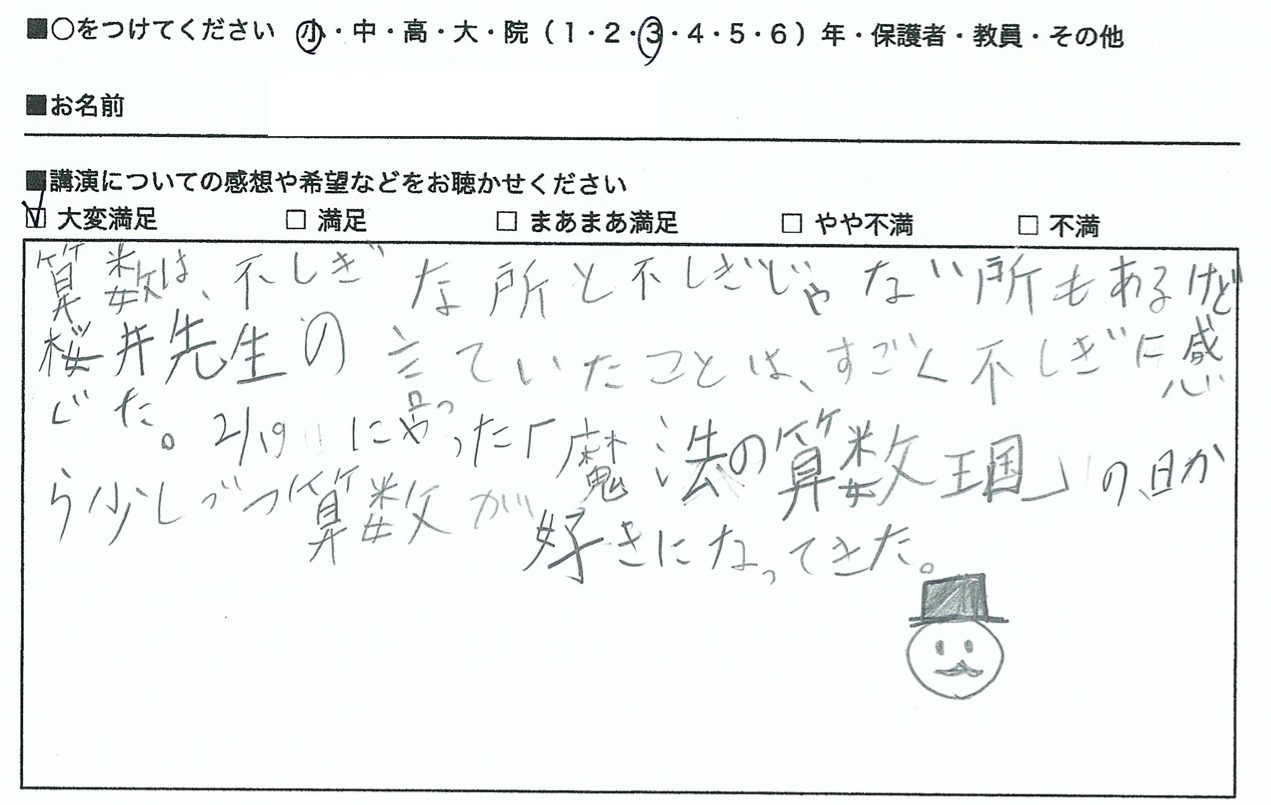 ■○をつけてください 小・中・高・大・院（1・2・3・4・5・6）年・保護者・教員・その他
■お名前
■講演についての感想や希望などをお聴かせください
☑ 大変満足 □ 満足 □ まあまあ満足 □ やや不満 □ 不満
算数は、不しぎな所と不しぎじゃない所もあるけど
桜井先生の言ていたことは、すごく不しぎに感
じた。2/19に言った「魔法の算数王国」の、日か
ら少しづつ算数が好きになってきた。